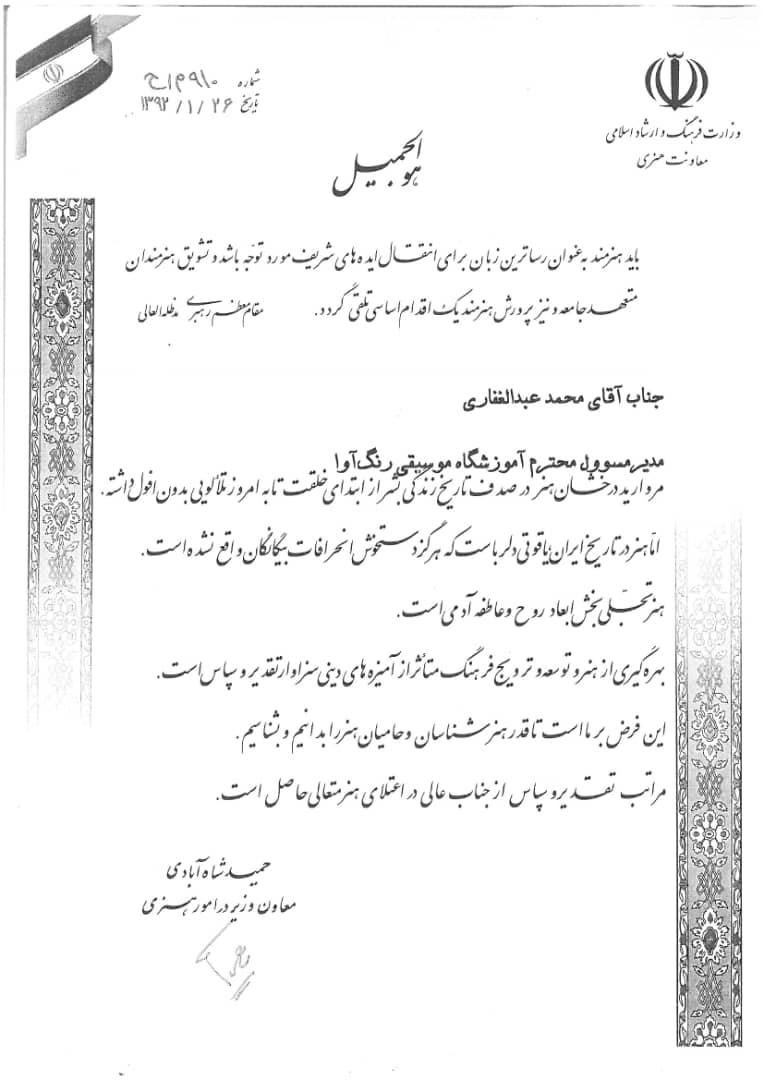 وزارت فرهنگ و ارشاد اسلامی
معاونت هنری
شماره
تاریخ ۱۳۹۲/۱/۲۶
هوالجمیل
باید هنرمند به عنوان رساترین زبان برای انتقال ایده های شریف مورد توجّه باشد و تشویق هنرمندان
متعهد جامعه و نیز پرورش هنرمند یک اقدام اساسی تلقّی گردد. مقام معظم رهبری مدظله العالی
جناب آقای محمد عبدالغفاری
مدیر مسوول محترم آموزشگاه موسیقی رنگ آوا
مروارید درخشان هنر در صدف تاریخ زندگی بشر از ابتدای خلقت تا به امروز تلألویی بدون افول داشته.
امّا هنر در تاریخ ایران یاقوتی دلرباست که هرگز دستخوش انحرافات بیگانگان واقع نشده است.
هنر تجلّی بخش ابعاد روح و عاطفه آدمی است.
بهره گیری از هنر و توسعه و ترویج فرهنگ متأثر از آمیزه های دینی سزاوار تقدیر و سپاس است.
این فرض بر ما است تا قدر هنر شناسان و حامیان هنر را بدانیم و بشناسیم.
مراتب تقدیر و سپاس از جناب عالی در اعتلای هنر متعالی حاصل است.
حمید شاه آبادی
معاون وزیر در امور هنری